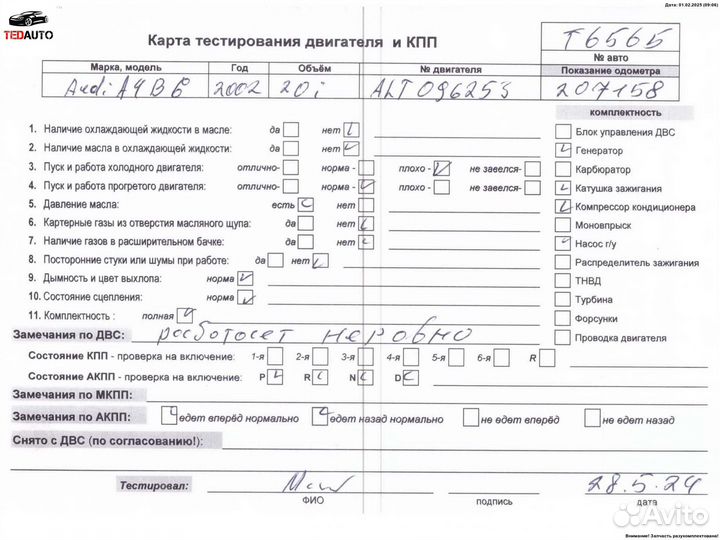 Дата: 01.02.2025 (09:06)
TEDAUTO
Карта тестирования двигателя и КПП
T6565
№ авто
Марка, модель Год Объём № двигателя Показание одометра
Audi A4 B6 2002 20i ALT 096253 207158
комплектность
1. Наличие охлаждающей жидкости в масле: да нет
2. Наличие масла в охлаждающей жидкости: да нет
3. Пуск и работа холодного двигателя: отлично- норма - плохо - не завелся-
4. Пуск и работа прогретого двигателя: отлично- норма - плохо - не завелся-
5. Давление масла: есть нет
6. Картерные газы из отверстия масляного щупа: да нет
7. Наличие газов в расширительном бачке: да нет
8. Посторонние стуки или шумы при работе: да нет
9. Дымность и цвет выхлопа: норма
10. Состояние сцепления: норма
11. Комплектность : полная
Блок управления ДВС
Генератор
Карбюратор
Катушка зажигания
Компрессор кондиционера
Моновпрыск
Насос г/у
Распределитель зажигания
ТНВД
Турбина
Форсунки
Проводка двигателя
Замечания по ДВС: работает неровно
Состояние КПП - проверка на включение: 1-я 2-я 3-я 4-я 5-я 6-я R
Состояние АКПП - проверка на включение: P R N D
Замечания по МКПП:
Замечания по АКПП: едет вперёд нормально едет назад нормально не едет вперёд не едет назад
Снято с ДВС (по согласованию!):
Тестировал: 28.5.24
ФИО подпись дата
Avito
Внимание! Запчасть разукомплектована!